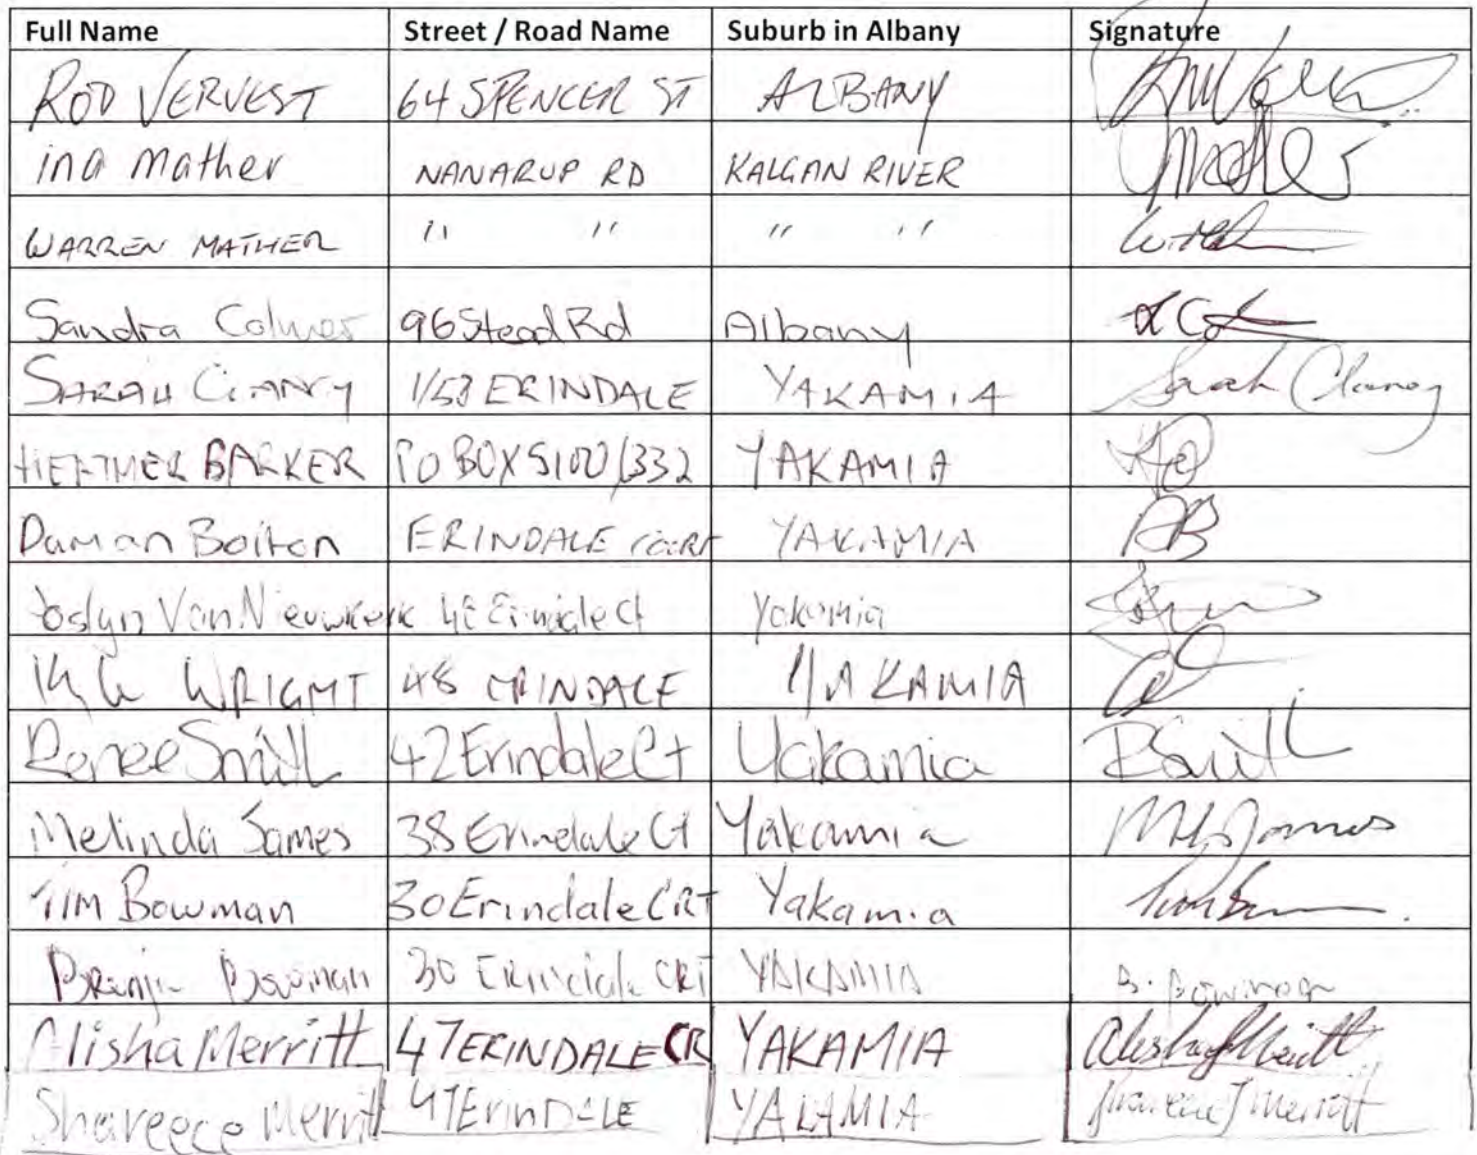 Full Name Street / Road Name Suburb in Albany Signature
ROD VERVEST 64 SPENCER ST ALBANY
ina mather NANARUP RD KALGAN RIVER Mather
WARREN MATHER " " " "
Sandra 96 Stead Rd Albany
SARAH CLANCY 1/53 ERINDALE YAKAMIA Sarah Clancy
HEATHER BARKER PO BOX 5100/332 YAKAMIA
Damian Bolton ERINDALE COURT YAKAMIA
Joslyn Van Nieuwkerk 48 Erindale Ct Yakamia
Kyle WRIGHT 48 ERINDALE YAKAMIA
Renee Smith 42 Erindale Ct Yakamia RSmith
Melinda James 38 Erindale Ct Yakamia James
TIM Bowman 30 Erindale CRT Yakamia
Bowman 30 Erindale CRT YAKAMIA B. Bowman
Alisha Merritt 47 ERINDALE CR YAKAMIA Alisha Merritt
Shareece Merritt 47 ErinDALE YAKAMIA Shareece J Merritt